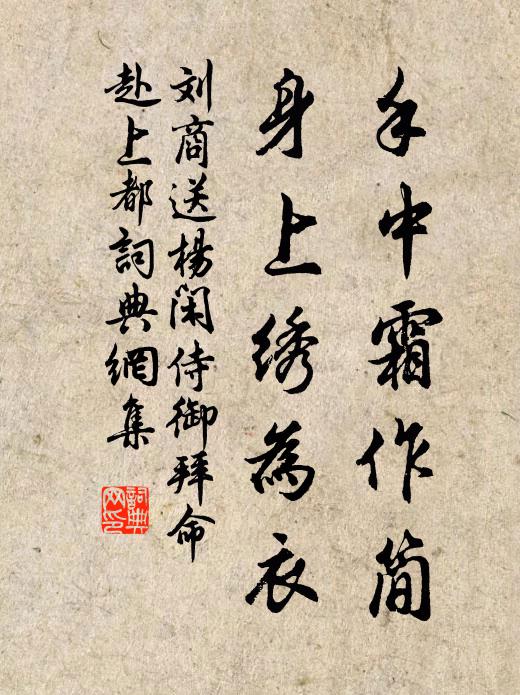 手中霜作简
身上绣為衣
刘商送楊闲侍御拜命
赴上都詞典網集
詞典
网印